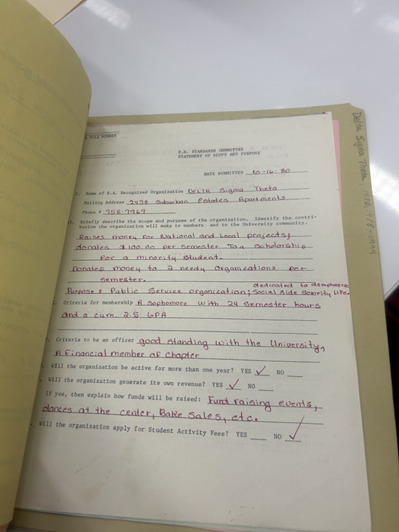 RULE NUMBER
S.A. STANDARDS COMMITTEE
STATEMENT OF SCOPE AND PURPOSE
DATE SUBMITTED 10-16-80
Name of S.A. Recognized Organization Delta Sigma Theta
Mailing Address 2438 Suburban Estates Apartments
Phone # 758-7967
Briefly describe the scope and purpose of the organization. Identify the contri-
bution the organization will make to members and to the University community.
Raises money for National and Local projects,
donates $100.00 per semester To a Scholarship
For a minority Student.
Donates money to 2 needy Organizations per
Semester.
dedicated to
Purpose: Public Service organization; Social Side Sorority Life.
Criteria for membership A Sophomore with 24 Semester hours
and a cum. 2.5 GPA
Criteria to be an officer good standing with the University,
A financial member of Chapter
Will the organization be active for more than one year? YES ✓ NO
Will the organization generate its own revenue? YES ✓ NO
If yes, then explain how funds will be raised: Fund raising events,
dances at the center, Bake Sales, etc.
Will the organization apply for Student Activity Fees? YES NO ✓
Delta Sigma Theta,